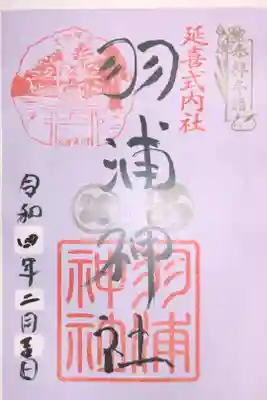 延喜式内社
羽浦神社
羽浦
神社
令和四年二月吉日